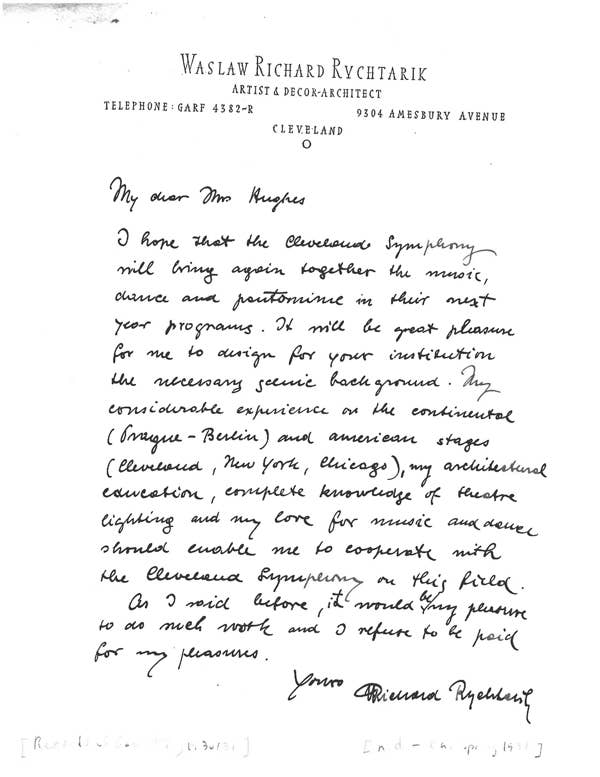 WASLAW RICHARD RYCHTARIK
ARTIST & DECOR-ARCHITECT
TELEPHONE: GARF 4382-R
9304 AMESBURY AVENUE
CLEVELAND
O
My dear Mrs Hughes
I hope that the Cleveland Symphony
will bring again together the music,
dance and pantomime in their next
year programs. It will be great pleasure
for me to design for your institution
the necessary scenic background. My
considerable experience on the continental
(Prague-Berlin) and american stages
(Cleveland, New York, Chicago), my architectural
education, complete knowledge of theatre
lighting and my love for music and dance
should enable me to cooperate with
the Cleveland Symphony on this field.
As I said before, it would be my pleasure
to do such work and I refuse to be paid
for my pleasures.
Yours Richard Rychtarik